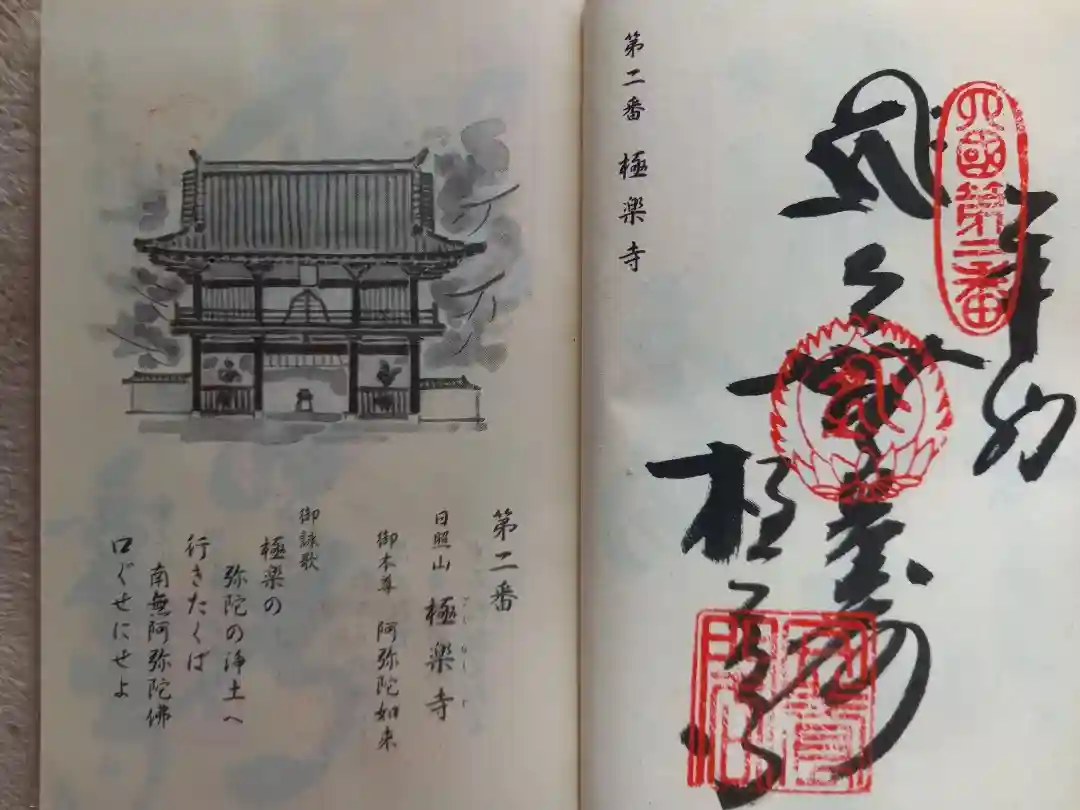 第二番
日照山 極楽寺
ごくらくじ
御本尊 阿弥陀如来
御詠歌
極楽の
弥陀の浄土へ
行きたくば
南無阿弥陀佛
口ぐせにせよ
第二番 極楽寺
四國第二番
奉納
極楽寺